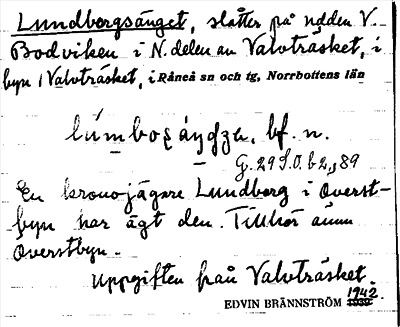 Lundbergsänget, slåtter på udden V.
Bodviken i N. delen av Valvträsket, i
byn Valvträsket, i Råneå sn och tg, Norrbottens län
bf. n.
G. 29 S.O. b2, 89
En kronojägare Lundberg i Överst-
byn har ägt den. Tillhör ännu
Överstbyn.
Uppgiften från Valvträsket.
EDVIN BRÄNNSTRÖM 1942